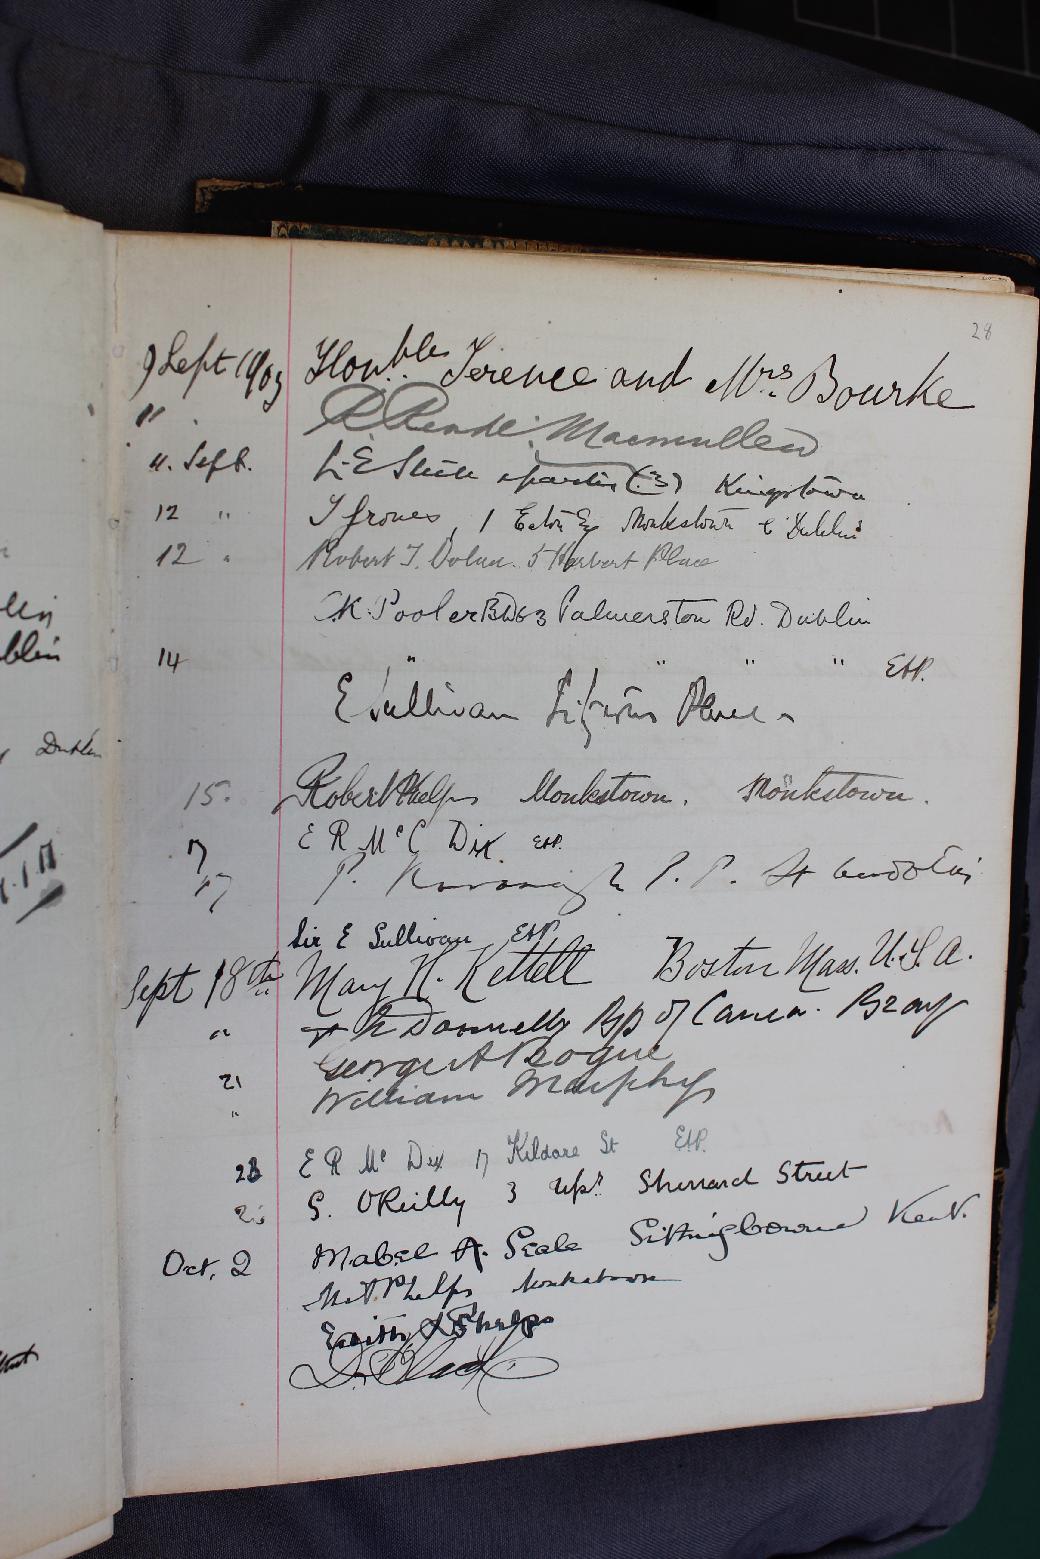 28
9 Sept 1903 Honbles Terence and Mrs Bourke
" Macmullen
11. Sept. L. E. Steele (3) Kingstown
12 " J Groves, 1 Eaton Sq Monkstown Co Dublin
12 " Robert T. Dolan. 5 Herbert Place
C.K. Pooler BD 63 Palmerston Rd. Dublin
14 " " " " E+P.
E Sullivan Fitzwm Place
15. Robert Phelps Monkstown. Monkstown.
17 E R McC Dix E+P.
17 P. Kavanagh P. P.
Sir E Sullivan E+P
Sept 18th Mary H. Kettell Boston Mass. U.S.A.
" + N Donnelly Bp of Canea. Bray
George A Bogue
21 William Murphy
"
23 E R Mc Dix 17 Kildare St E+P.
G. O'Reilly 3 Upr Sherrard Street
Oct. 2 Mabel A. Seale Sittingbourne Kent.
Phelps Monkstown
Edith Phelps
lin
blin
Dublin